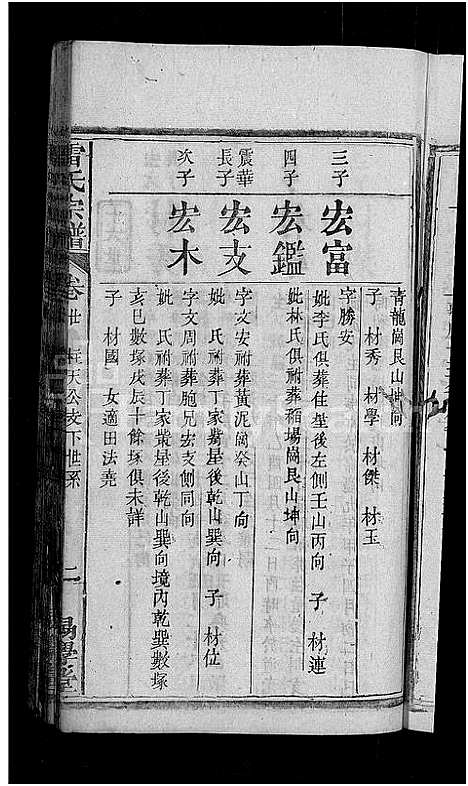 青龍崗艮山坤向
子 材秀 材學 材傑 材玉
三子
宏富
字勝安
妣李氏俱葬住屋後左側壬山丙向 子 材連
四子
宏鑑
妣林氏俱祔葬稻場崗艮山坤向
震華長子
宏支
字文安祔葬黃泥崗癸山丁向
妣 氏祔葬丁家嘴屋後乾山巽向 子 材位
次子
宏木
字文周祔葬胞兄宏支側同向
妣 氏祔葬丁家嘴屋後乾山巽向境內乾巽數塚
亥巳數塚戌辰十餘塚俱未詳
子 材國 女適田法堯
雷氏宗譜
卷廿 廷天公支下世系
二
易學堂